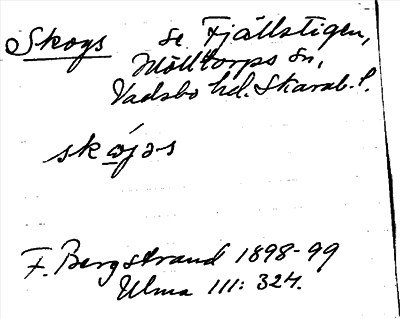 Skogs se Fjällstigen,
Mölltorps sn,
Vadsbo hd. Skarab. l.
skójəs
F. Bergstrand 1898-99
Ulma 111: 324.